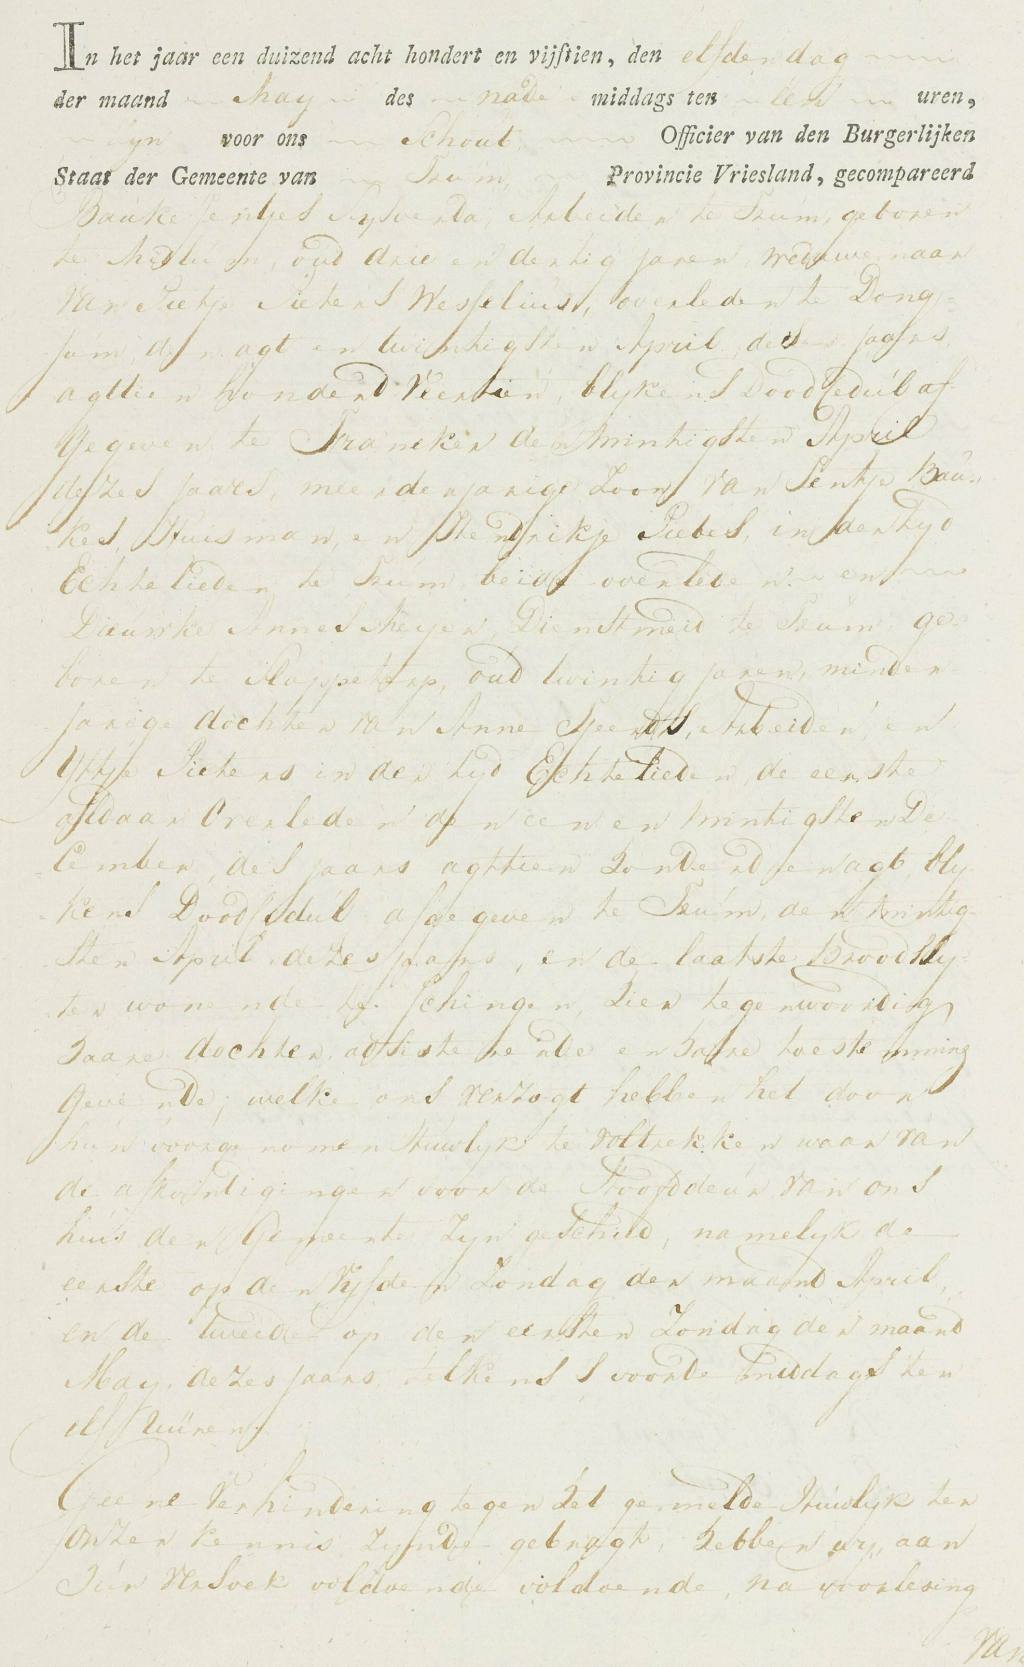 In het jaar een duizend acht hondert en vijftien, den elfden dag
der maand May des nade middags ten uren,
zyn voor ons Schout Officier van den Burgerlijken
Staat der Gemeente van Trum Provincie Vriesland, gecompareerd
Bauke Sentjes Sylverda, Arbeider te Trum, geboren
te Midlum, oud drie en dertig jaren, weduwenaar
van Pietje Pieters Wesselius, overleden te Dong-
jum, den agt en twintigsten April des jaars
agttien honderd Veertien, blykens Doodsedul af-
gegeven te Franeker den twintigsten April
dezes jaars, meerderjarige Zoon van Sentje Bau-
kes, Huisman, en Hendrikje Piebes, in der tyd
Echtelieden te Trum beide overleden en
Dieuwke Annes Meyer, Dienstmeid te Trum ge-
boren te Slappeterp, oud twintig jaren, minder-
jarige dochter van Anne Sjeerds, Arbeider, en
Yttje Pieters in der tyd Echtelieden, de eerste
aldaar Overleden den een en twintigsten De-
cember, des jaars agttien honderd en agt, bly-
kens Doodsedul afgegeven te Trum, den twintig-
sten April dezes jaars, en de laatste Broodsly-
ter wonende te Schingen, hier tegenwoordig
haare dochter adsisterende en haare toestemming
gevende; welke ons verzogt hebben het door
hun voorgenomen Huwlyk te voltrekken waar van
de afkondigingen voor de Hoofddeur van ons
huis der Gemeente zyn geschied, namelyk de
eerste op den Vyfden Zondag der maand April,
en de tweede op den eersten Zondag der maand
May dezes jaars telkens s voorde middags ten
elf uuren.
Geene Verhindering tegen het gemelde Huwlyk ter
onzer kennis zynde gebragt, hebben wy, aan
hun Versoek voldoende voldoende, na voorlesing
van